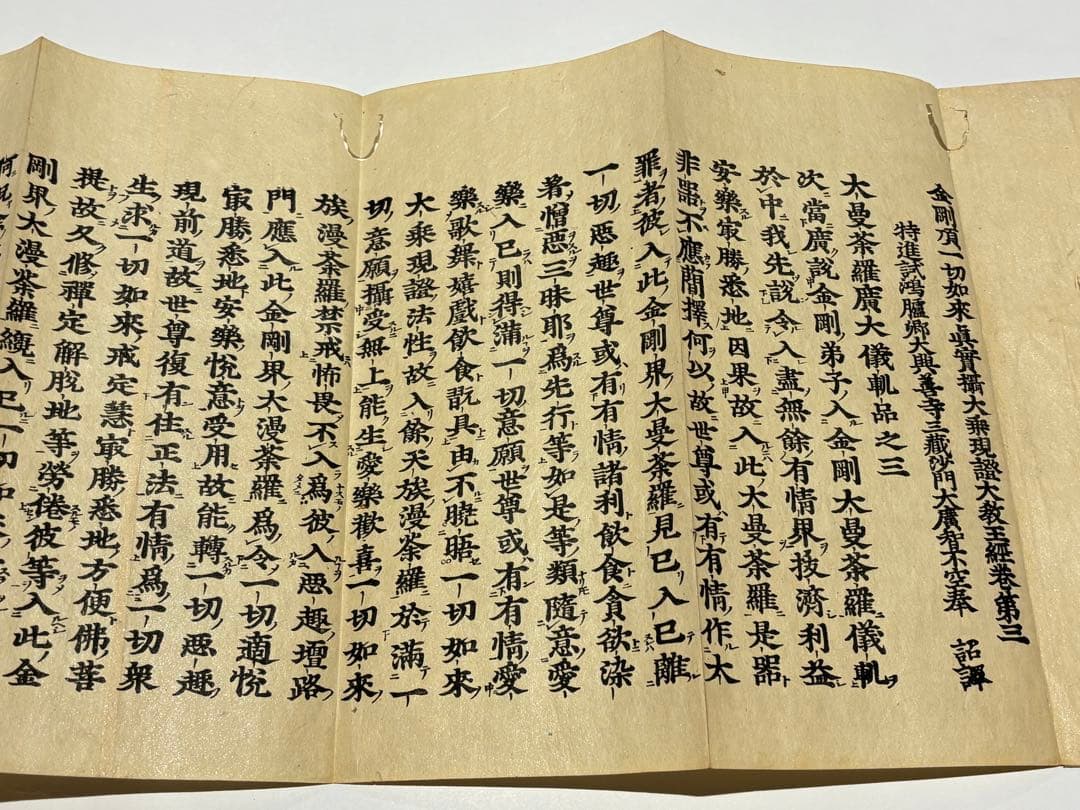 金剛頂一切如來眞實攝大乘現證大教王經卷第三
特進試鴻臚卿大興善寺三藏沙門大廣智不空奉　詔譯
大曼荼羅廣大儀軌品之三
次當廣說金剛弟子入金剛大曼荼羅儀軌
於中我先說令入盡無餘有情界拔濟利益
安樂冣勝悉地因果故入此大曼荼羅是器
非器不應簡擇何以故世尊或有有情作大
罪者彼入此金剛界大曼荼羅見已入已離
一切惡趣世尊或有有情諸利飲食貪欲染
著憎惡三昧耶爲先行等如是等類隨意愛
樂入已則得滿一切意願世尊或有有情愛
樂歌舞嬉戲飲食翫具由不曉晤一切如來
大乘現證法性故入餘天族漫荼羅於滿一
切意願攝受無上能生愛樂歡喜一切如來
族漫荼羅禁戒怖畏不入爲彼入惡趣壇路
門應入此金剛界大漫荼羅爲令一切適悅
冣勝悉地安樂悅意受用故能轉一切惡趣
現前道故世尊復有住正法有情爲一切衆
生求一切如來戒定慧冣勝悉地方便佛菩
提故久修禪定解脫地等勞倦彼等入此金
剛界大漫荼羅纔入已一切如